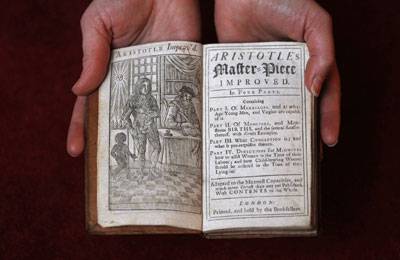 ARISTOTLE Improv'd.
ARISTOTLE's
Master-Piece
IMPROVED.
In FOUR PARTS,
Containing
PART I. Of MARRIAGES, and at what
Age Young Men, and Virgins are capable
of it.
PART II. Of MONSTERS, and Mon-
strous BIRTHS, and the several
with Examples.
PART III. What CONCEPTION is; and
what is pre-requisite thereto.
PART IV. DIRECTIONS for MIDWIVES
how to assist Women in the Time of their
Labour; and how Child-bearing Women
should be ordered in the Time of their
Lying-in:
Adapted to the Meanest Capacities, and
much more Correct than any yet Publish'd.
With CONTENTS to the Whole.
LONDON:
Printed, and sold by the Booksellers.